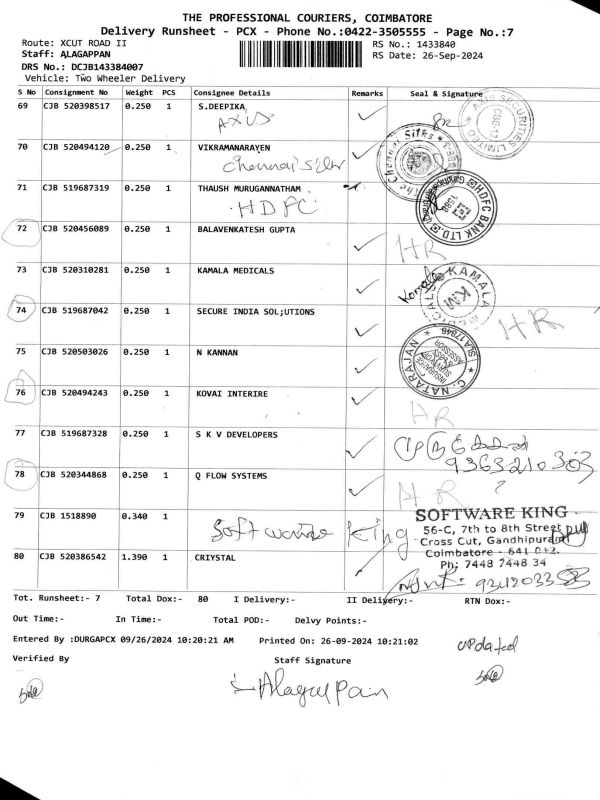 THE PROFESSIONAL COURIERS, COIMBATORE
Delivery Runsheet - PCX - Phone No.:0422-3505555 - Page No.:7
Route: XCUT ROAD II RS No.: 1433840
Staff: ALAGAPPAN RS Date: 26-Sep-2024
DRS No.: DCJB143384007
Vehicle: Two Wheeler Delivery
S No Consignment No Weight PCS Consignee Details Remarks Seal & Signature
69 CJB 520398517 0.250 1 S.DEEPIKA
AXIS
AXIS SECURITIES LIMITED
70 CJB 520494120 0.250 1 VIKRAMANARAYEN
Chennai Silks
The Chennai Silks
71 CJB 519687319 0.250 1 THAUSH MURUGANNATHAM
HDFC
HDFC BANK LTD.
72 CJB 520456089 0.250 1 BALAVENKATESH GUPTA
HR
73 CJB 520310281 0.250 1 KAMALA MEDICALS
Kamala
KAMALA MEDICALS
KM
74 CJB 519687042 0.250 1 SECURE INDIA SOL;UTIONS
HR
75 CJB 520503026 0.250 1 N KANNAN
C. NATARAJAN
INSURANCE SURVEYOR ASSESSOR
76 CJB 520494243 0.250 1 KOVAI INTERIRE
HR
77 CJB 519687328 0.250 1 S K V DEVELOPERS
9363210303
78 CJB 520344868 0.250 1 Q FLOW SYSTEMS
HR ?
79 CJB 1518890 0.340 1
Software King
SOFTWARE KING
56-C, 7th to 8th Street
Cross Cut, Gandhipuram
Coimbatore - 641 012.
Ph: 7448 7448 34
80 CJB 520386542 1.390 1 CRIYSTAL
Tot. Runsheet:- 7 Total Dox:- 80 I Delivery:- II Delivery:- RTN Dox:-
Out Time:- In Time:- Total POD:- Delvy Points:-
Entered By :DURGAPCX 09/26/2024 10:20:21 AM Printed On: 26-09-2024 10:21:02
updated
Verified By Staff Signature
Alagappan